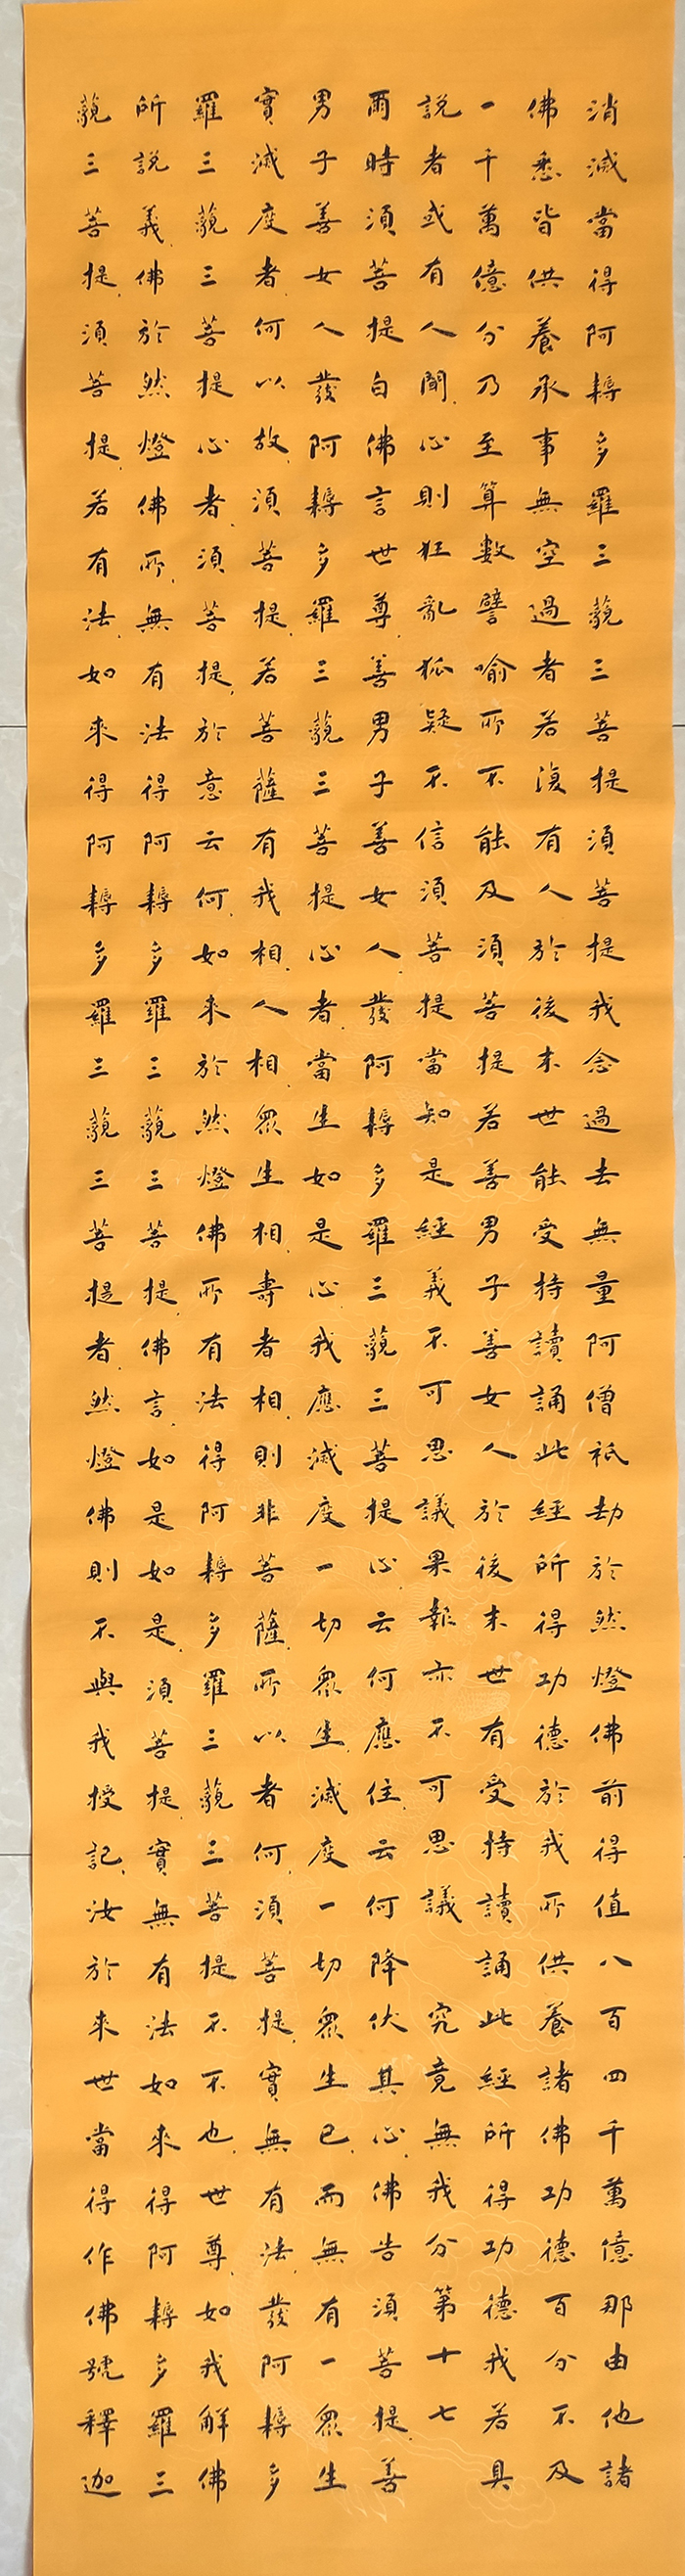 消滅當得阿耨多羅三藐三菩提須菩提我念過去無量阿僧祇劫於然燈佛前得值八百四千萬億那由他諸
佛悉皆供養承事無空過者若復有人於後末世能受持讀誦此經所得功德於我所供養諸佛功德百分不及
一千萬億分乃至算數譬喻所不能及須菩提若善男子善女人於後末世有受持讀誦此經所得功德我若具
說者或有人聞心則狂亂狐疑不信須菩提當知是經義不可思議果報亦不可思議 究竟無我分第十七
爾時須菩提白佛言世尊善男子善女人發阿耨多羅三藐三菩提心云何應住云何降伏其心佛告須菩提善
男子善女人發阿耨多羅三藐三菩提心者當生如是心我應滅度一切眾生滅度一切眾生已而無有一眾生
實滅度者何以故須菩提若菩薩有我相人相眾生相壽者相則非菩薩所以者何須菩提實無有法發阿耨多
羅三藐三菩提心者須菩提於意云何如來於然燈佛所有法得阿耨多羅三藐三菩提不不也世尊如我解佛
所說義佛於然燈佛所無有法得阿耨多羅三藐三菩提佛言如是如是須菩提實無有法如來得阿耨多羅三
藐三菩提須菩提若有法如來得阿耨多羅三藐三菩提者然燈佛則不與我授記汝於來世當得作佛號釋迦